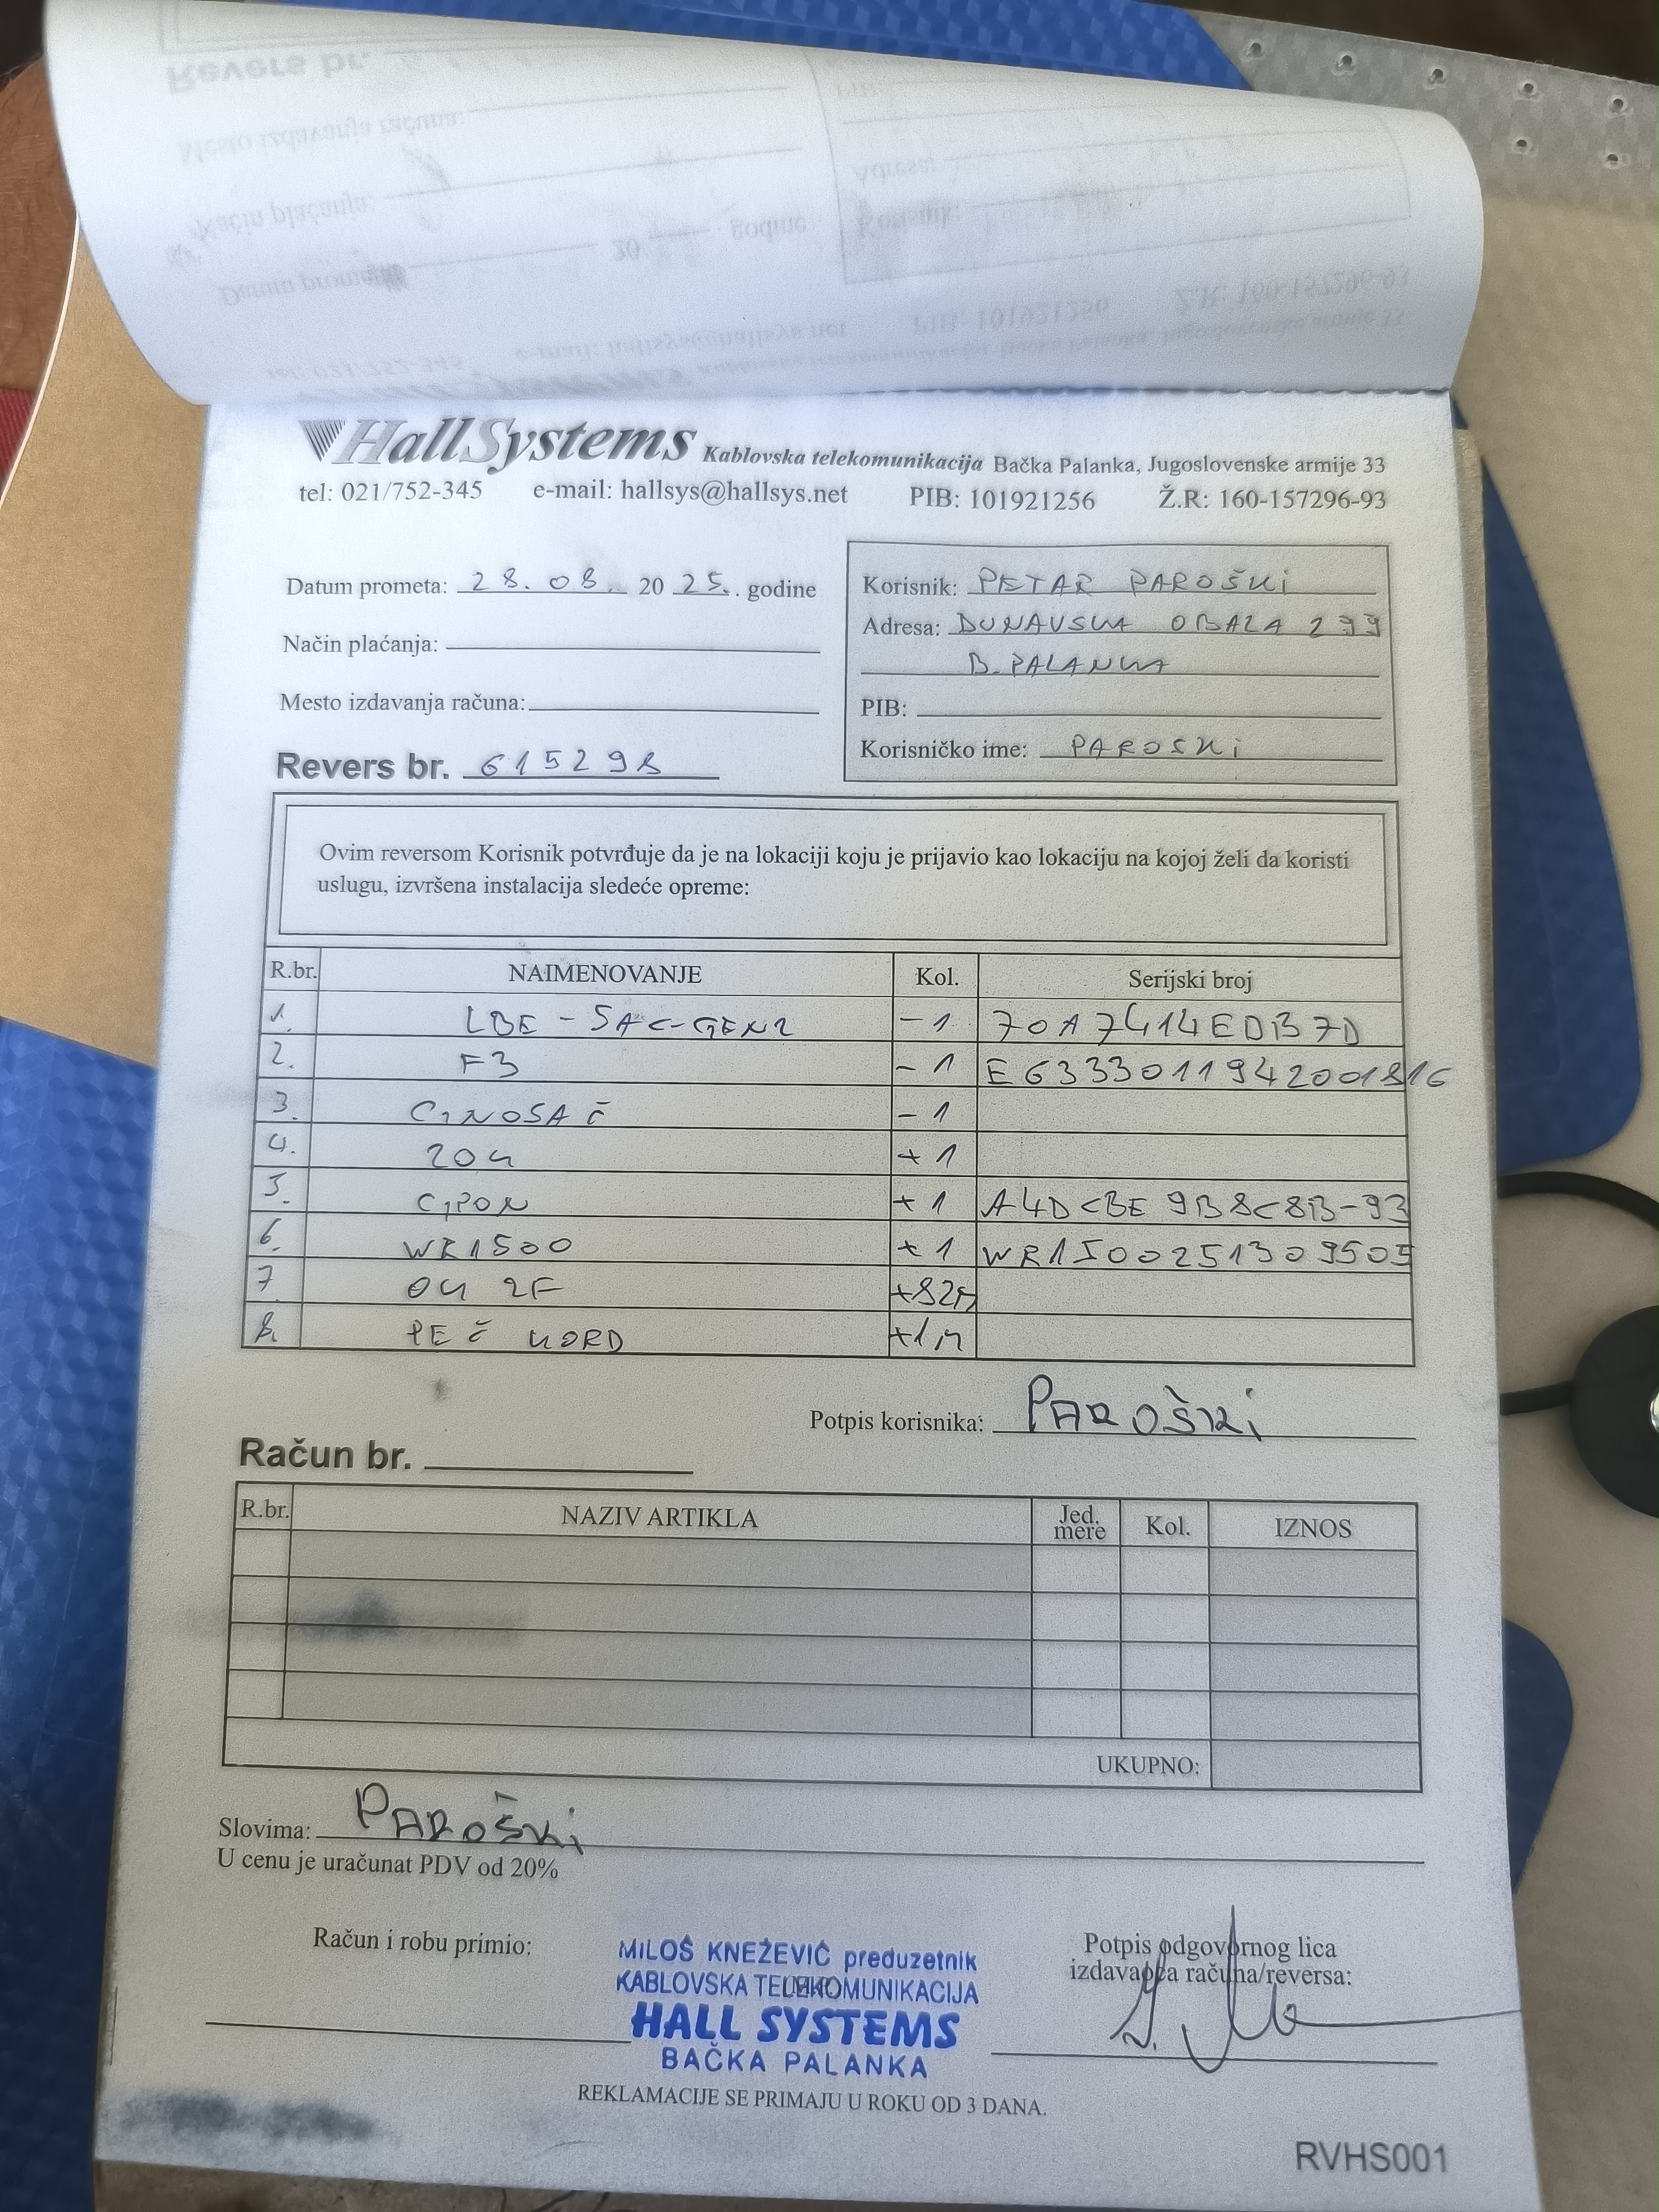 HallSystems Kablovska telekomunikacija Bačka Palanka, Jugoslovenske armije 33
tel: 021/752-345 e-mail: hallsys@hallsys.net PIB: 101921256 Ž.R: 160-157296-93
Datum prometa: 28.08. 2025. godine
Način plaćanja:
Mesto izdavanja računa:
Revers br. 615298
Korisnik: PETAR PAROŠKI
Adresa: DUNAVSKA OBALA 299
B. PALANKA
PIB:
Korisničko ime: PAROSKI
Ovim reversom Korisnik potvrđuje da je na lokaciji koju je prijavio kao lokaciju na kojoj želi da koristi
uslugu, izvršena instalacija sledeće opreme:
R.br. NAIMENOVANJE Kol. Serijski broj
1. LBE-5AC-GEN2 -1 70A7414EDB7D
2. F3 -1 E6333011942001816
3. NOSAČ -1
4. ZOK +1
5. GPON +1 A4DCBE9B8C8B-93
6. WR1500 +1 WR1500251309505
7. OK 2F +82m
8. PEČ KORD +1m
Potpis korisnika: PAROŠKI
Račun br.
R.br. NAZIV ARTIKLA Jed. mere Kol. IZNOS
UKUPNO:
Slovima: PAROŠKI
U cenu je uračunat PDV od 20%
Račun i robu primio:
MILOŠ KNEŽEVIĆ preduzetnik
KABLOVSKA TELEKOMUNIKACIJA
HALL SYSTEMS
BAČKA PALANKA
Potpis odgovornog lica
izdavaoca računa/reversa:
REKLAMACIJE SE PRIMAJU U ROKU OD 3 DANA.
RVHS001